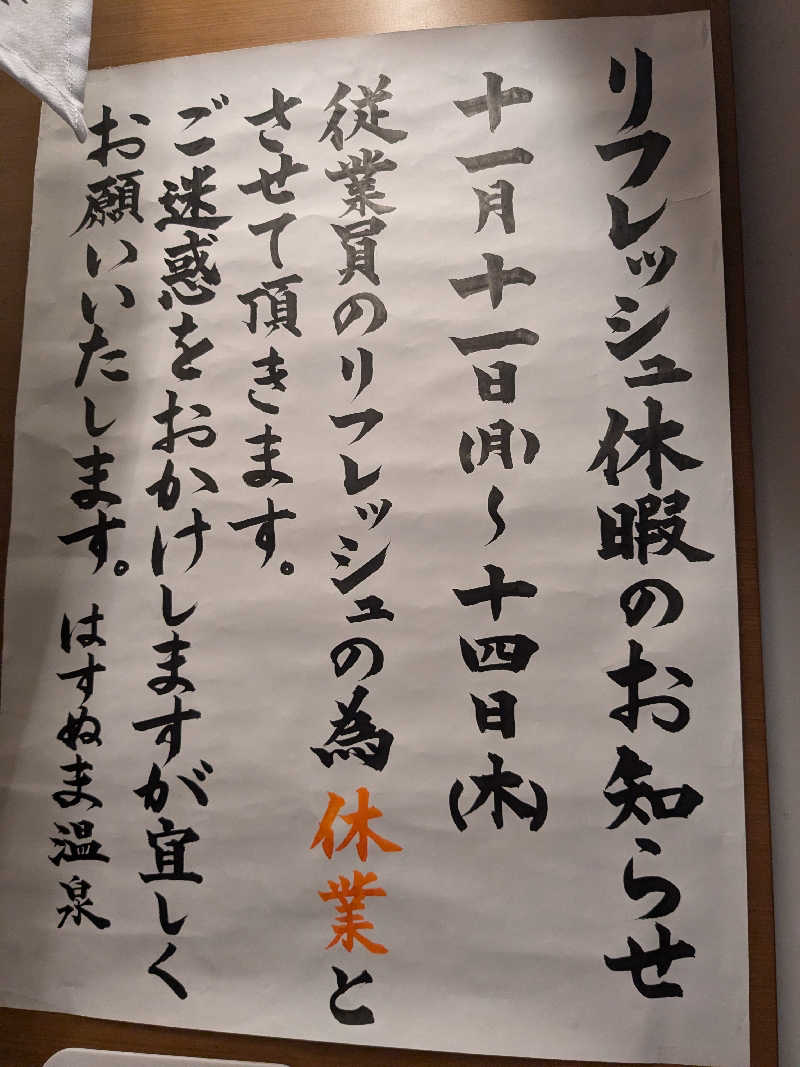 リフレッシュ休暇のお知らせ
十一月十一日(月)～十四日(木)
従業員のリフレッシュの為休業と
させて頂きます。
ご迷惑をおかけしますが宜しく
お願いいたします。はすぬま温泉